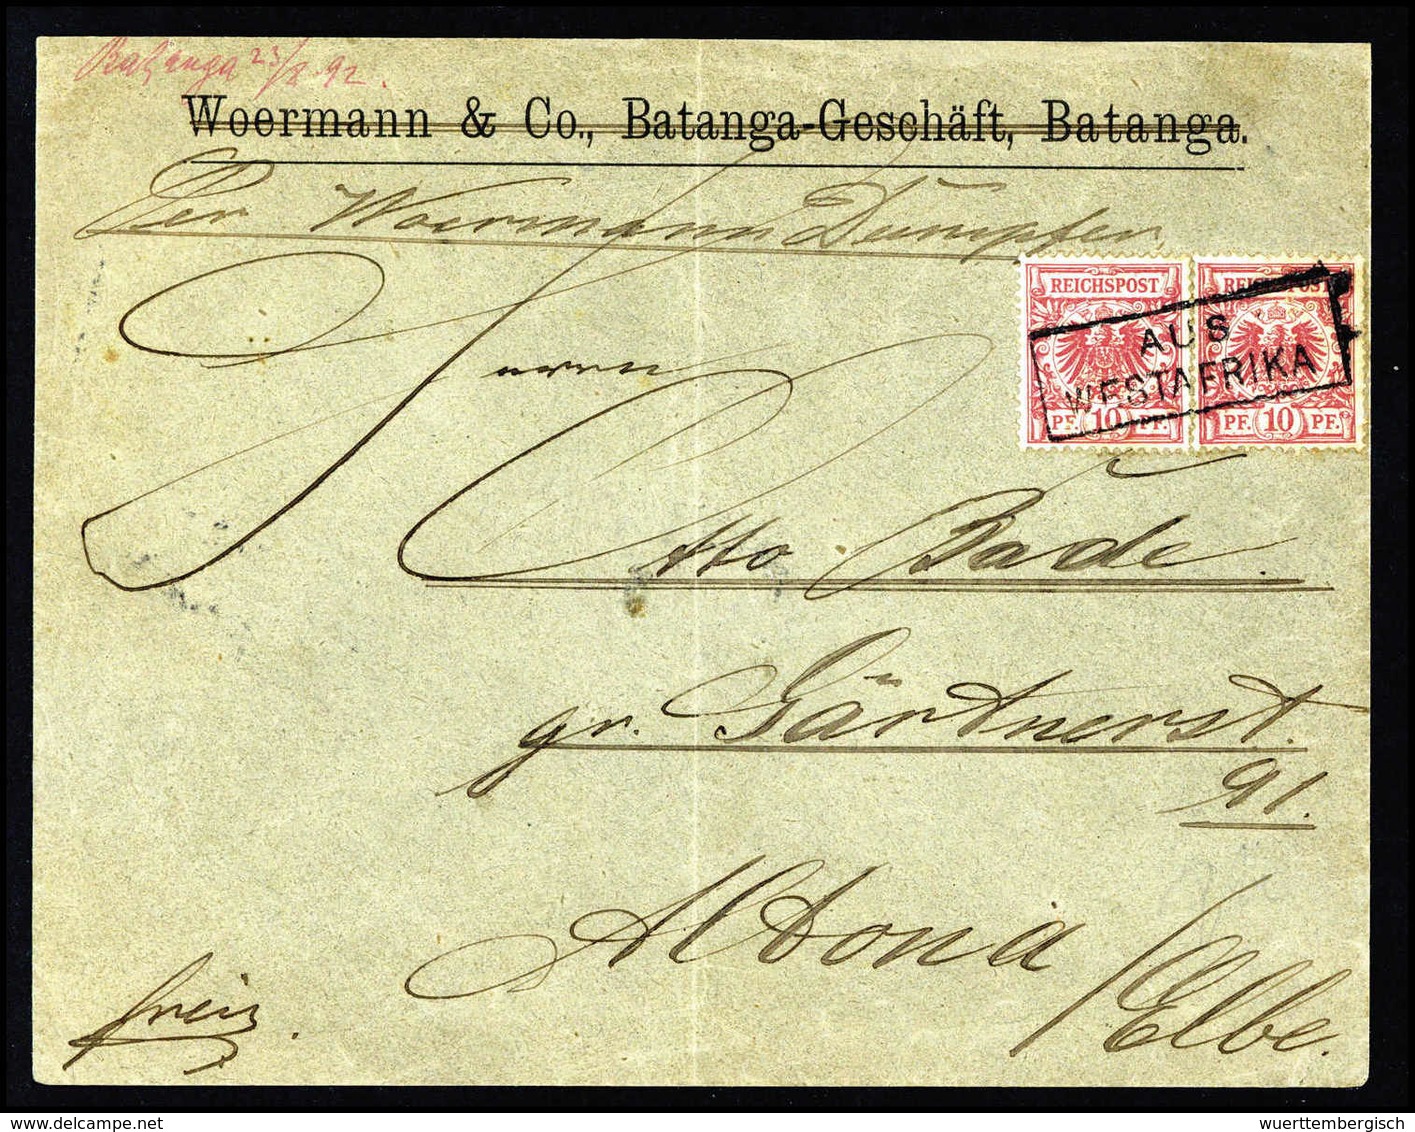 Batanga 23/X. 92.
Woermann & Co., Batanga-Geschäft, Batanga.
Per Woermann Dampfer
REICHSPOST
PF. 10 PF.
REICHSPOST
PF. 10 PF.
AUS
WESTAFRIKA
Herrn
Otto Bade.
gr. Gärtnerst.
91.
Altona /Elbe.
frei.
wuerttembergisch